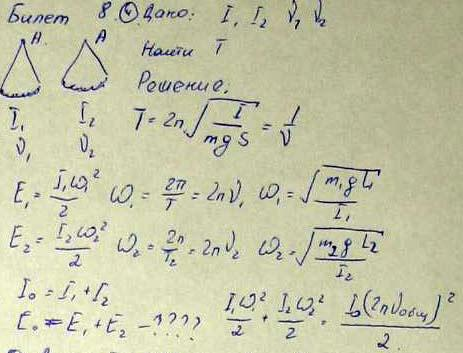 Билет 8. ④ Дано: I₁ I₂ ν₁ ν₂
A A Найти T
Решение.
I₁ I₂ T = 2π√(I/mgS) = 1/ν
ν₁ ν₂
E₁ = I₁ω₁²/2 ω₁ = 2π/T = 2πν₁ ω₁ = √(m₁gL₁/I₁)
E₂ = I₂ω₂²/2 ω₂ = 2π/T₂ = 2πν₂ ω₂ = √(m₂gL₂/I₂)
I₀ = I₁ + I₂
E₀ = E₁ + E₂ - ???? I₁ω²/2 + I₂ω₂²/2 = I₀(2πνобщ)²/2